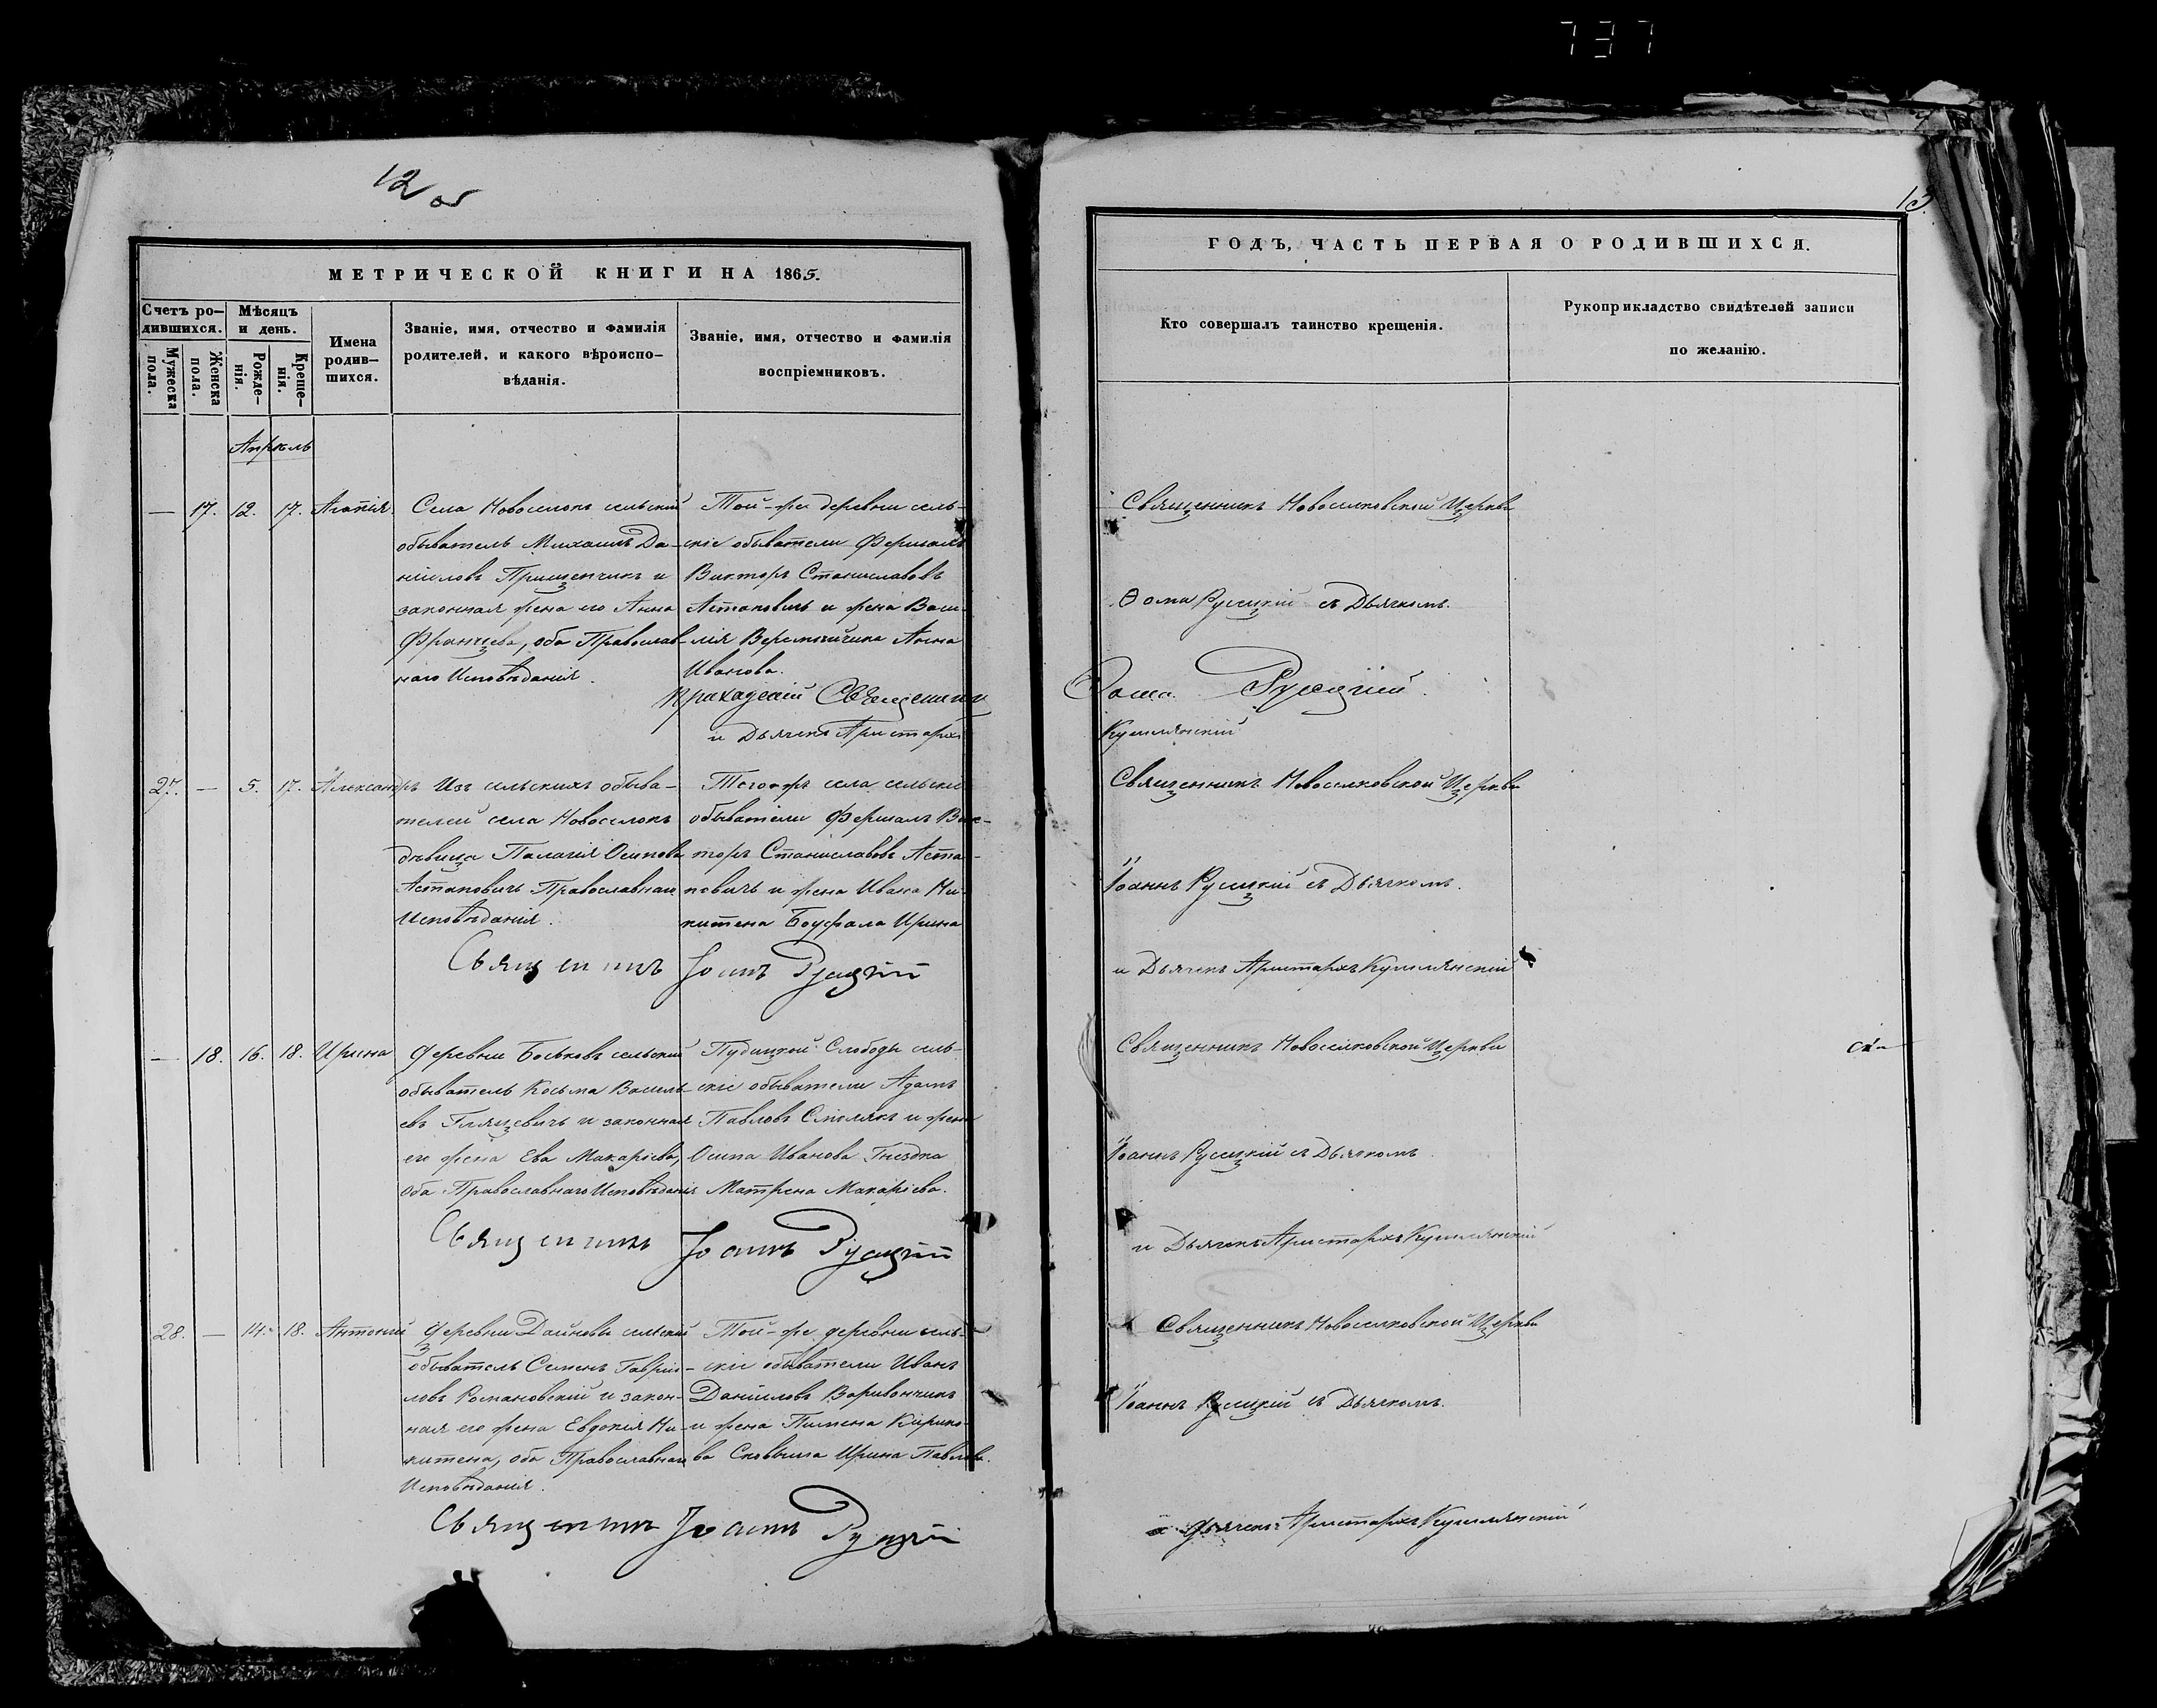 737
12 об
МЕТРИЧЕСКОЙ КНИГИ НА 1865.
Счетъ ро-
дившихся.
Мужеска
пола.
Женска
пола.
Мѣсяцъ
и день.
Рожде-
нія.
Креще-
нія.
Имена
родив-
шихся.
Званіе, имя, отчество и фамилія
родителей, и какого вѣроиспо-
вѣданія.
Званіе, имя, отчество и фамилія
воспріемниковъ.
Апрѣль
— 17. 12. 17. Агапія.
Села Новоселокъ сельскій
обыватель Михаилъ Да-
ніиловъ Прищепчикъ и
законная жена его Анна
Францева, оба Православ-
наго Исповѣданія.
Той-же деревни сель-
скіе обыватели Фершалъ
Викторъ Станиславовъ
Астаповичъ и жена Васи-
лія Веремѣйчика Анна
Иванова.
Священникъ
и Дьячекъ Аристархъ
27. — 5. 17. Александръ
Изъ сельскихъ обыва-
телей села Новоселокъ
дѣвица Палагія Осипова
Астаповичъ Православнаго
Исповѣданія.
Тогожъ села сельскіе
обыватели Фершалъ Вик-
торъ Станиславовъ Аста-
повичъ и жена Ивана Ни-
китена Боуфала Ирина
Священникъ Іоаннъ Русецкій
— 18. 16. 18. Ирина
Деревни Боськовъ сельскій
обыватель Косьма Василь-
евъ Гляцевичъ и законная
его жена Ева Макаріева,
оба Православнаго Исповѣданія
Пудицкой Слободы сель-
скіе обыватели Адамъ
Павловъ Смолякъ и жена
Осипа Иванова Гнездка
Матрена Макаріева.
Священникъ Іоаннъ Русецкій
28. — 14. 18. Антоній
Деревни Дайновы сельскій
обыватель Семенъ Гаврі-
ловъ Романовскій и закон-
ная его жена Евдокія Ни-
китена, оба Православнаго
Исповѣданія.
Той-же деревни сель-
скіе обыватели Иванъ
Даніиловъ Варивончикъ
и жена Пимена Кирико-
ва Сковыша Ирина Павлова.
Священникъ Іоаннъ Русецкій
13.
ГОДЪ, ЧАСТЬ ПЕРВАЯ О РОДИВШИХСЯ.
Кто совершалъ таинство крещенія.
Рукоприкладство свидѣтелей записи
по желанію.
Священникъ Новоселковской Церкви
Ѳома Русецкій съ Дьячкомъ.
Ѳома Русецкій.
Кушлянскій
Священникъ Новоселковской Церкви
Іоаннъ Русецкій съ Дьячкомъ.
и Дьячекъ Аристархъ Кушлянскій
Священникъ Новоселковской Церкви
Іоаннъ Русецкій съ Дьячкомъ
и Дьячекъ Аристархъ Кушлянскій
Священникъ Новоселковской Церкви
Іоаннъ Русецкій съ Дьячкомъ.
и Дьячекъ Аристархъ Кушлянскій